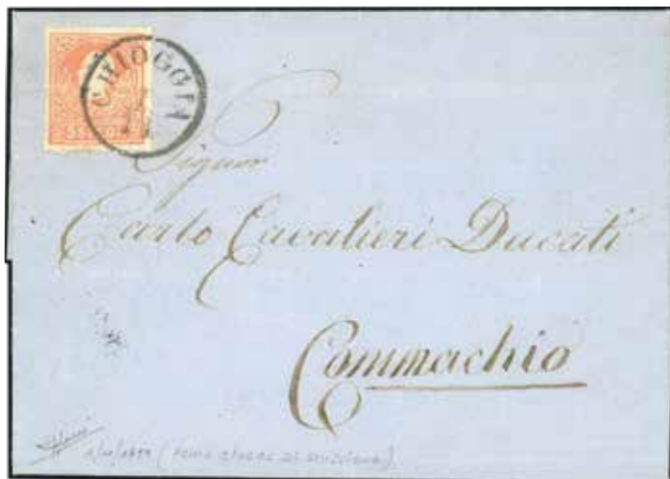 CHIOGGIA
Signor
Carlo Cavalieri Ducati
Commachio